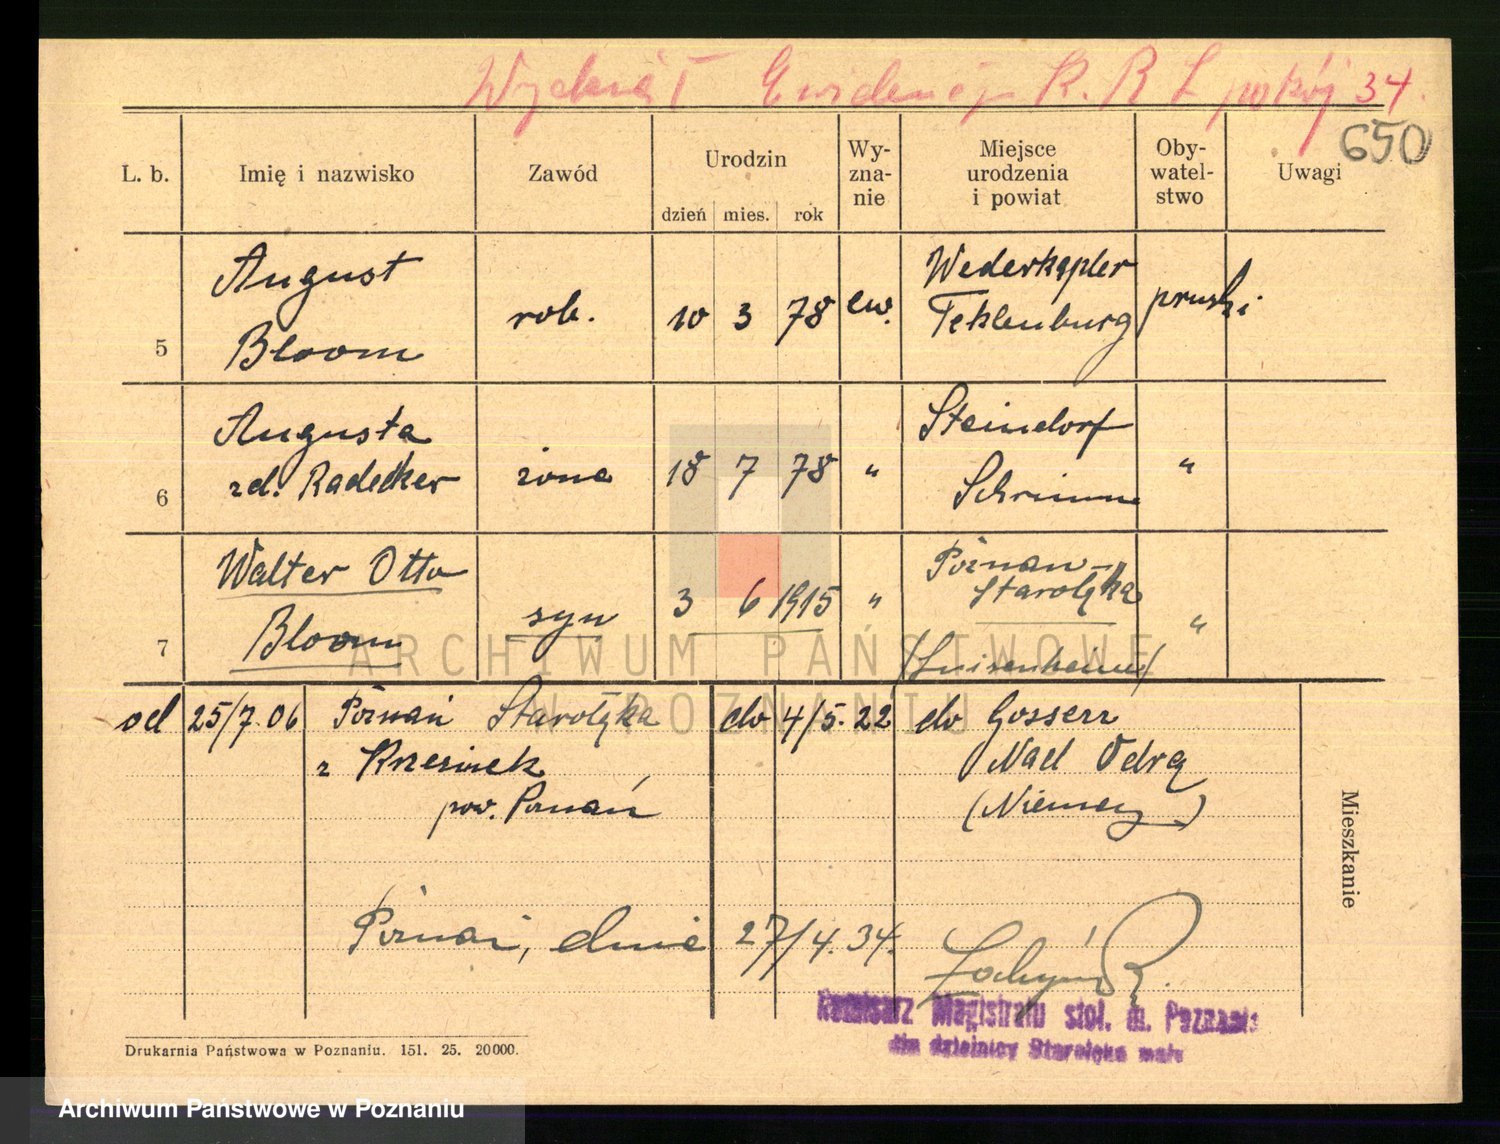 Wydział Ewidencji K. R. L pokój 34.
650
L. b. Imię i nazwisko Zawód Urodzin dzień mies. rok Wy-zna-nie Miejsce urodzenia i powiat Oby-watel-stwo Uwagi
5 August Bloom rob. 10 3 78 ew. Wederkapler Teklenburg pruski
6 Augusta zd. Radecker żona 18 7 78 " Steindorf Schrimm "
7 Walter Otto Bloom syn 3 6 1915 " Poznań-Starołęka (Luisenhain) "
od 25/7.06 Poznań Starołęka do 4/5.22 do Gosserr
z Krzesinek Nad Odrą
pow. Poznań (Niemcy)
Mieszkanie
Poznań, dnia 27/4.34.
Komisarz Magistratu stoł. m. Poznania
dla dzielnicy Starołęka mała
Drukarnia Państwowa w Poznaniu. 151. 25. 20000.
ARCHIWUM PAŃSTWOWE
W POZNANIU
Archiwum Państwowe w Poznaniu